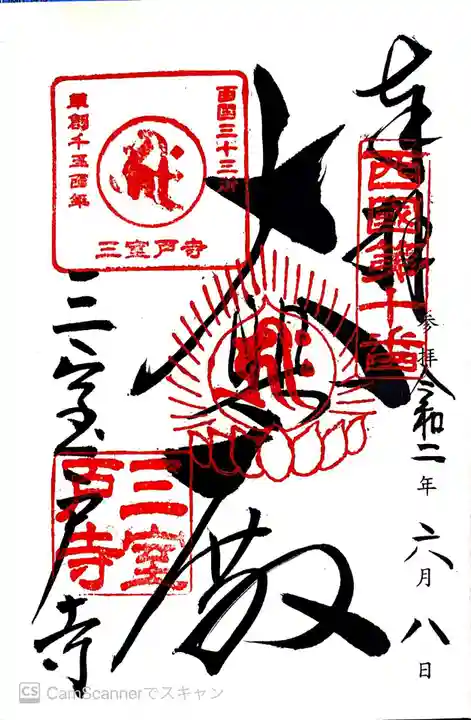 奉拝
西國第十番
参拝 令和二年 六月 八日
大悲殿
西国三十三所
草創千三百年
三室戸寺
三室戸寺
三室戸寺
CS CamScannerでスキャン